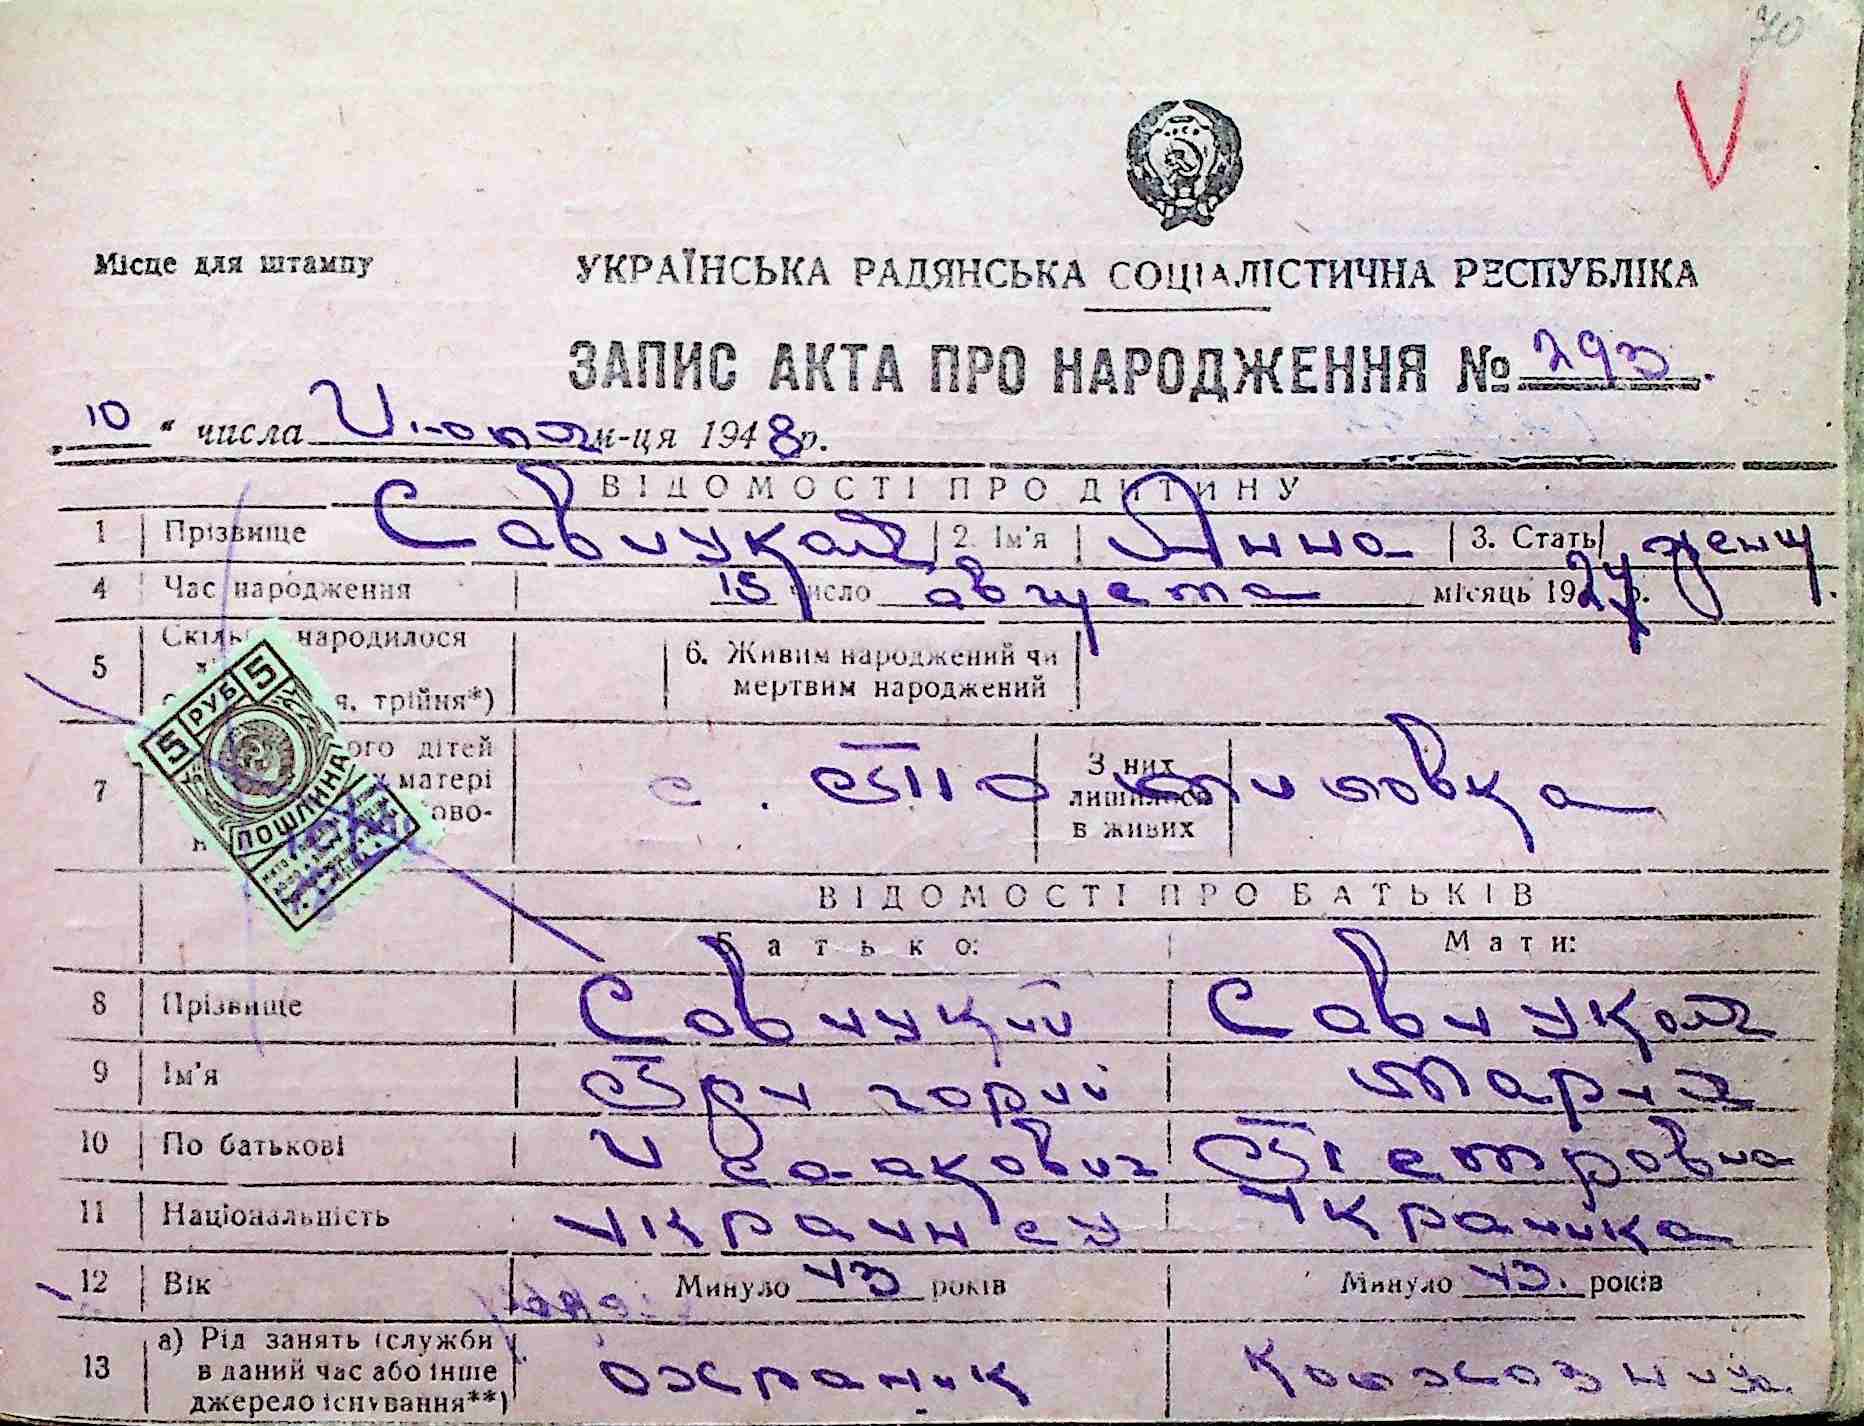 70
V
Місце для штампу
УКРАЇНСЬКА РАДЯНСЬКА СОЦІАЛІСТИЧНА РЕСПУБЛІКА
ЗАПИС АКТА ПРО НАРОДЖЕННЯ № 293.
„10“ числа Июля м-ця 1948 р.
ВІДОМОСТІ ПРО ДИТИНУ
1 Прізвище Савчукая 2. Ім'я Анна 3. Стать женщ
4 Час народження 15 число августа місяць 1927 р.
5 народилося
я, трійня*)
6. Живим народжений чи
мертвим народжений
7 дітей
матері
с.
З них
лишилося
в живих
5 РУБ 5
ПОШЛИНА
ВІДОМОСТІ ПРО БАТЬКІВ
Батько: Мати:
8 Прізвище Савчукий Савчукая
9 Ім'я Григорий Мария
10 По батькові Исаакович Петровна
11 Національність украинец украинка
12 Вік Минуло 43 років Минуло 43. років
13 а) Рід занять (служби
в даний час або інше
джерело існування**)
охраник колхозница